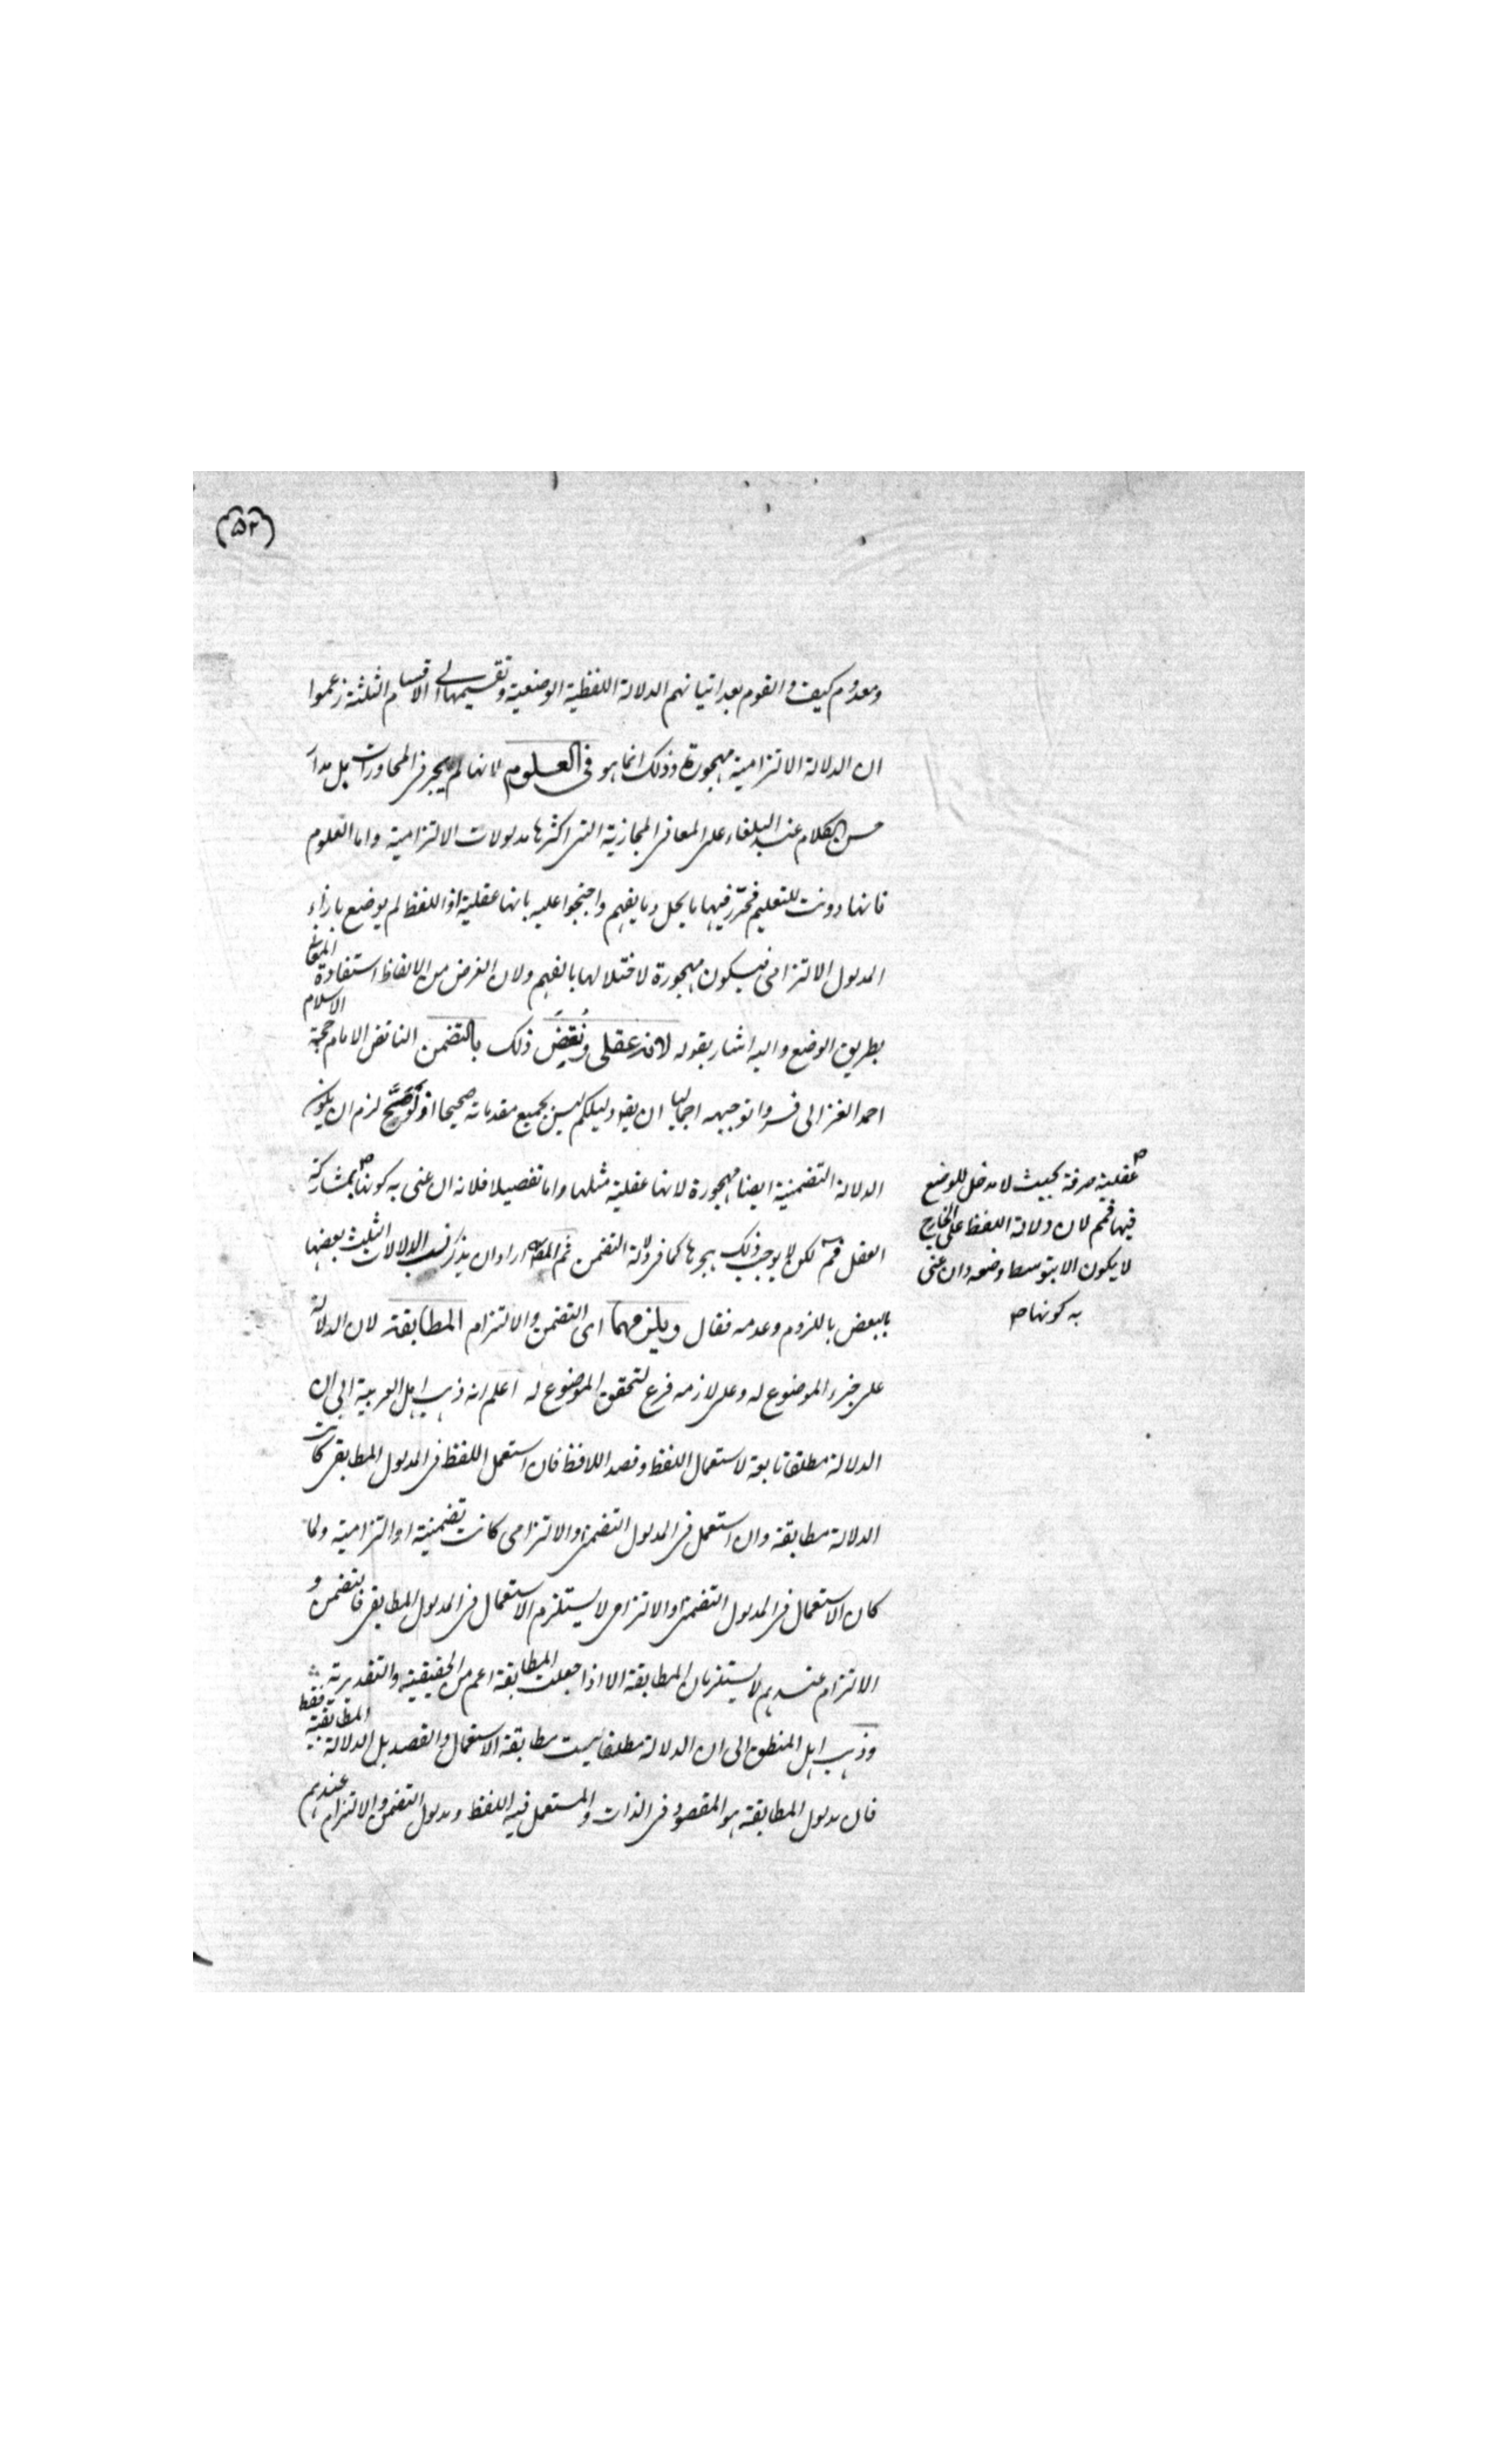 (۵۲)
ومعدوم كيف والقوم بعد اتيانهم الدلالة اللفظية الوضعية وتقسيمها الى الاقسام الثلثة زعموا
ان الدلالة الالتزامية مهجورة وذلك انما هو فى العلوم لانها لم يهجر فى المحاورات بل مدار
حسن الكلام عند البلغاء على المعانى المجازية التى اكثرها مدلولات الالتزامية واما العلوم
فانها دونت للتعليم فيها ما يخل وما يفهم واحتجوا عليه بانها عقلية اذ اللفظ لم يوضع بازاء
المدلول الالتزامى فيكون مهجورة لاختلالها بالفهم ولان الغرض من الالفاظ استفادة المعانى
بطريق الوضع واليه اشار بقوله لانه عقلى ونقض ذلك بالتضمن الناقض الامام حجة الاسلام
احمد الغزالى توجيهه اجماليا ان يقو دليلكم ليس بجميع مقدماته صحيحا اذ لو صح لزم ان يكون
الدلالة التضمنية ايضا مهجورة لانها عقلية مثلها واما تفصيلا فلانه ان عنى به كونها بمشاركة
العقل فمم لكن لا يوجب ذلك هجرها كما فى دلالة التضمن ثم المصـ اراد ان يذكر نسب الدلالات الثلث بعضها
بالبعض باللزوم وعدمه فقال ويلزمهما اى التضمن والالتزام المطابقة لان الدلالة
على جزء الموضوع له وعلى لازمه فرع لتحقق الموضوع له اعلم انه ذهب اهل العربية الى ان
الدلالة مطلقا تابعة لاستعمال اللفظ وقصد اللافظ فان استعمل اللفظ فى المدلول المطابقى كانت
الدلالة مطابقة وان استعمل فى المدلول التضمنى والالتزامى كانت تضمنية او التزامية ولما
كان الاستعمال فى المدلول التضمنى والالتزامى لا يستلزم الاستعمال فى المدلول المطابقى فالتضمن و
الالتزام عندهم لا يستلزمان المطابقة الا اذا جعلت المطابقة اعم من الحقيقية والتقديرية
وذهب اهل المنطق الى ان الدلالة مطلقا ليست مطابقة الاستعمال والقصد بل الدلالة المطابقية فقط
فان مدلول المطابقة هو المقصود فى الذات والمستعمل فيه اللفظ ومدلول التضمن والالتزام عندهم
عقلية صرفة بحيث لا مدخل للوضع
فيها فمم لان دلالة اللفظ على الخارج
لا يكون الا بتوسط وضعه وان عنى
به كونها